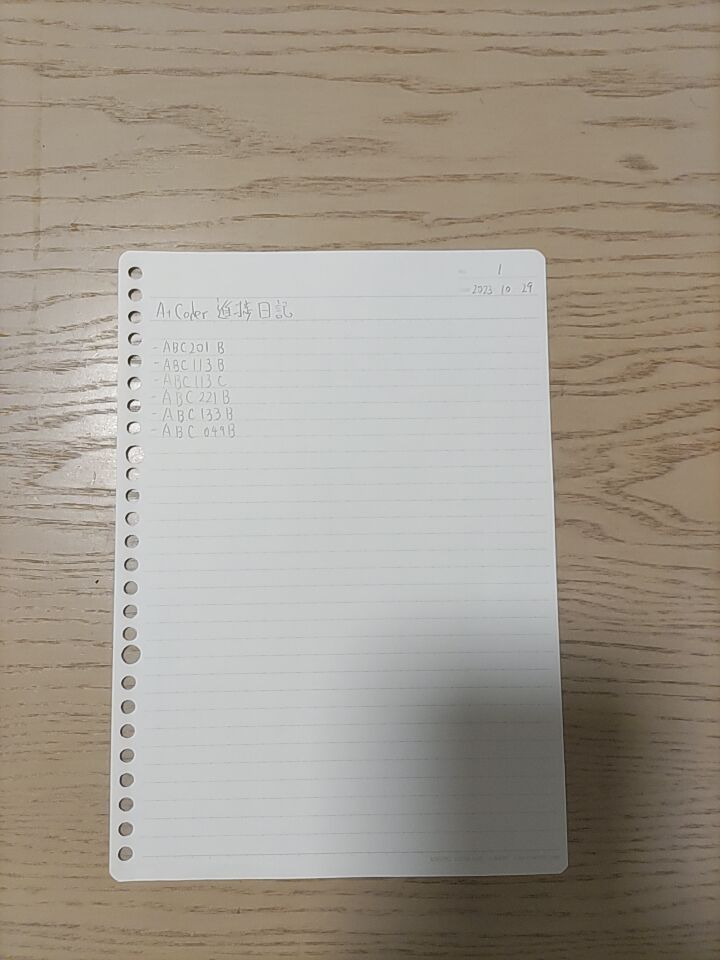 1
2023 10 29
AtCoder 近接日記
- ABC 201 B
- ABC 113 B
- ABC 113 C
- ABC 221 B
- ABC 133 B
- ABC 049 B